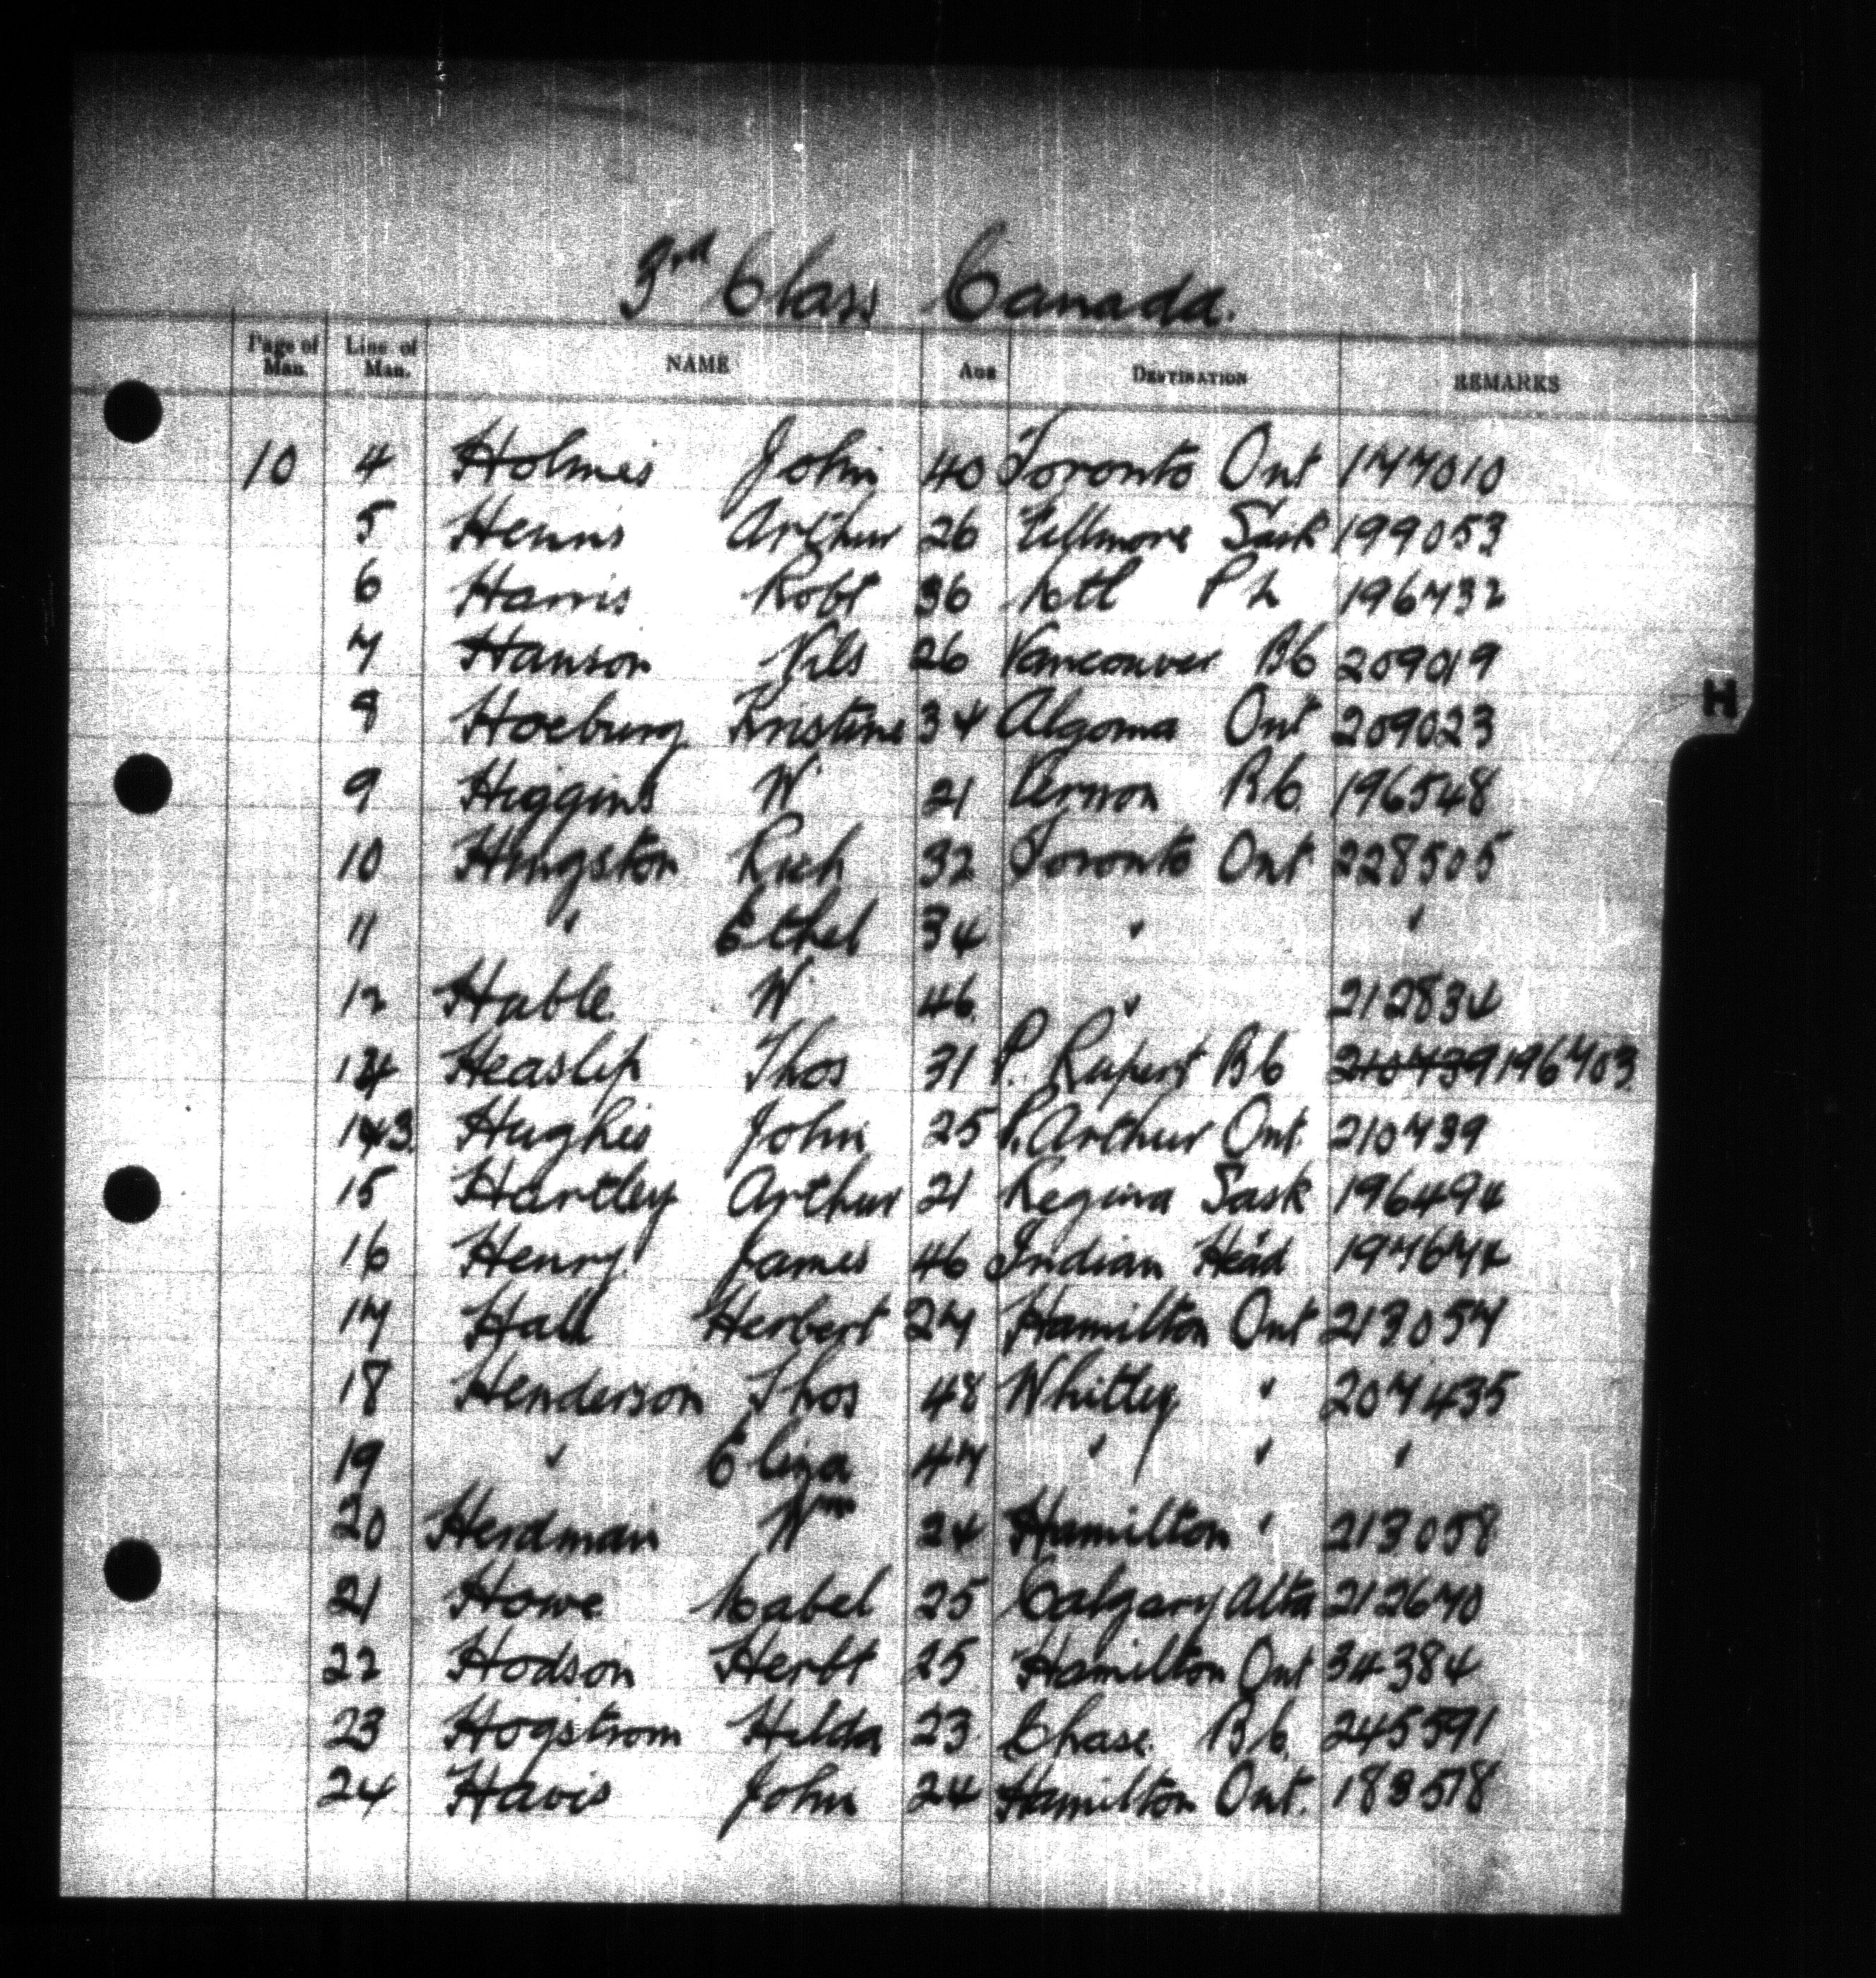 3rd Class Canada.
Page of Man. Line of Man. NAME AGE DESTINATION REMARKS
10 4 Holmes John 40 Toronto Ont 177010
5 Henns Arthur 26 Fillmore Sask 199053
6 Harris Robt 36 Mtl P2 196732
7 Hanson Nils 26 Vancouver BC 209019
H
8 Hoeburg Kristine 34 Algoma Ont 209023
9 Higgins W 21 Vernon BC 196548
10 Hingston Rich 32 Toronto Ont 228505
11 " Ethel 34 " "
12 Hable W 46 " 212834
14 Heaslip Thos 31 P. Rupert BC 210739 196703
13 Hughes John 25 P. Arthur Ont. 210739
15 Hartley Arthur 21 Regina Sask 196494
16 Henry James 46 Indian Head 197674
17 Hall Herbert 27 Hamilton Ont 213057
18 Henderson Thos 48 Whitley " 207435
19 " Eliza 47 " " "
20 Herdman Wm 24 Hamilton " 213058
21 Howe Mabel 25 Calgary Alta 212670
22 Hodson Herbt 25 Hamilton Ont 34384
23 Hogstrom Hilda 23 Chase BC 245591
24 Havis John 24 Hamilton Ont. 183578